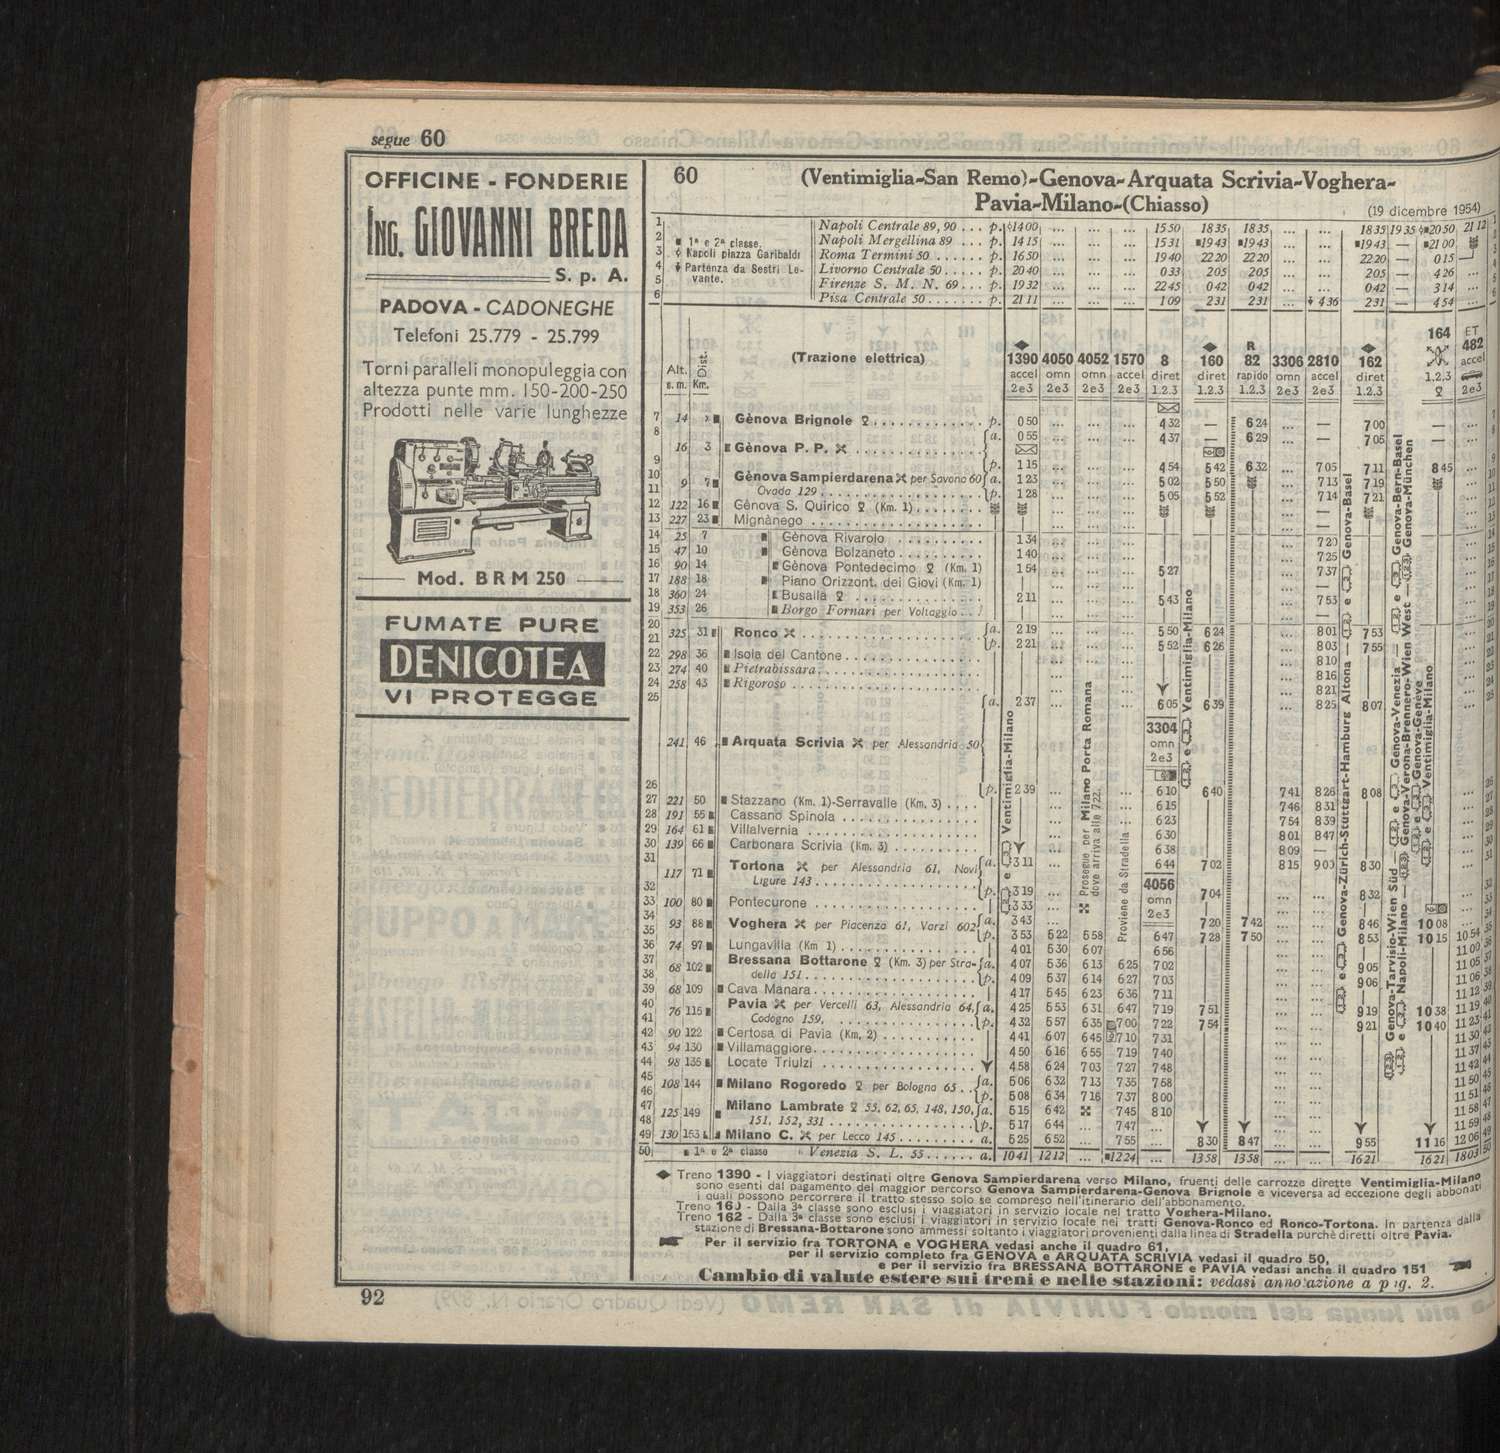 segue 60
OFFICINE - FONDERIE
ING. GIOVANNI BREDA
S. p. A.
PADOVA - CADONEGHE
Telefoni 25.779 - 25.799
Torni paralleli monopuleggia con
altezza punte mm. 150-200-250
Prodotti nelle varie lunghezze
Mod. BRM 250
FUMATE PURE
DENICOTEA
VI PROTEGGE
60 (Ventimiglia-San Remo)-Genova-Arquata Scrivia-Voghera-
Pavia-Milano-(Chiasso) (19 dicembre 1954)
■ 1ª e 2ª classe.
Napoli piazza Garibaldi
Partenza da Sestri Levante.
1 Napoli Centrale 89, 90 ... p. 14 00 ... ... ... 15 50 18 35 18 35 ... ... 18 35 19 35 20 50 21 12
2 Napoli Mergellina 89 ... p. 14 15 ... ... ... 15 31 ■19 43 ■19 43 ... ... ■19 43 — ■21 00
3 Roma Termini 50 ... p. 16 50 ... ... ... 19 40 22 20 22 20 ... ... 22 20 — 0 15
4 Livorno Centrale 50 ... p. 20 40 ... ... ... 0 33 2 05 2 05 ... ... 2 05 — 4 26 ...
5 Firenze S. M. N. 69 ... p. 19 32 ... ... ... 22 45 0 42 0 42 ... ... 0 42 — 3 14 ...
6 Pisa Centrale 50 ... p. 21 11 ... ... ... 1 09 2 31 2 31 ... 4 36 2 31 — 4 54 ...
Alt. s. m. Dist. Km. (Trazione elettrica) 1390 4050 4052 1570 8 160 R 82 3306 2810 162 164 ET 482
accel omn omn accel diret diret rapido omn accel diret accel
2e3 2e3 2e3 2e3 1.2.3 1.2.3 1.2.3 2e3 2e3 1.2.3 1.2.3 2e3
7 14 Gènova Brignole p. 0 50 ... ... ... 4 32 — 6 24 ... — 7 00 — ...
8 a. 0 55 ... ... ... 4 37 — 6 29 ... — 7 05 — ...
16 3 Gènova P. P.
9 p. 1 15 ... ... ... 4 54 5 42 6 32 ... 7 05 7 11 8 45 ...
10 9 7 Gènova Sampierdarena per Savona 60 a. 1 23 ... ... ... 5 02 5 50 ... 7 13 7 19 ...
11 Ovada 129 p. 1 28 ... ... ... 5 05 5 52 ... 7 14 7 21 ...
12 122 16 Gènova S. Quirico (Km. 1)
13 227 23 Mignànego
14 25 7 Gènova Rivarolo 1 34 ... ... ... 7 20
15 47 10 Gènova Bolzaneto 1 40 ... ... ... 7 25
16 90 14 Gènova Pontedecimo (Km. 1) 1 54 ... ... ... 5 27 ... 7 37
17 188 18 Piano Orizzont. dei Giovi (Km. 1)
18 360 24 Busalla 2 11 ... ... ... 5 43 ... 7 53
19 353 26 Borgo Fornari per Voltaggio
20 325 31 Ronco a. 2 19 ... ... ... 5 50 6 24 ... 8 01 7 53
21 p. 2 21 ... ... ... 5 52 6 26 ... 8 03 7 55
22 298 36 Isola del Cantone ... 8 10
23 274 40 Pietrabissara ... 8 16
24 258 43 Rigoroso ... 8 21
25 a. 2 37 ... 6 05 6 39 ... 8 25 8 07
241 46 Arquata Scrivia per Alessandria 50
3304
omn
2e3
26 p. 2 39 ... 6 10 6 40 7 41 8 26 8 08
27 221 50 Stazzano (Km. 1)-Serravalle (Km. 3) 6 15 7 46 8 31
28 191 55 Cassano Spinola 6 23 7 54 8 39
29 164 61 Villalvernia 6 30 8 01 8 47
30 139 66 Carbonara Scrivia (Km. 3) 6 38 8 09 —
31 117 71 Tortona per Alessandria 61, Novi a. 3 11 ... 6 44 7 02 8 15 9 00 8 30
32 Ligure 143 p. 3 19 ... 7 04 ... 8 32
4056
omn
2e3
33 100 80 Pontecurone 3 33 ...
34 93 88 Voghera per Piacenza 61, Varzi 602 a. 3 43 ... 7 20 7 42 ... 8 46 10 08
35 p. 3 53 5 22 5 58 6 47 7 28 7 50 ... 8 53 10 15 10 54
36 74 97 Lungavilla (Km 1) 4 01 5 30 6 07 6 56 11 00
37 68 102 Bressana Bottarone (Km. 3) per Stra- a. 4 07 5 36 6 13 6 25 7 02 9 05 11 05
38 della 151 p. 4 09 5 37 6 14 6 27 7 03 9 06 11 06
39 68 109 Cava Manara 4 17 5 45 6 23 6 36 7 11 11 12
40 76 115 Pavia per Vercelli 63, Alessandria 64, a. 4 25 5 53 6 31 6 47 7 19 7 51 9 19 10 38 11 19
41 Codogno 159, p. 4 32 5 57 6 35 7 00 7 22 7 54 9 21 10 40 11 23
42 90 122 Certosa di Pavia (Km. 2) 4 41 6 07 6 45 7 10 7 31 11 30
43 94 130 Villamaggiore 4 50 6 16 6 55 7 19 7 40 11 37
44 98 135 Locate Triulzi 4 58 6 24 7 03 7 27 7 48 11 42
45 108 144 Milano Rogoredo per Bologna 65 a. 5 06 6 32 7 13 7 35 7 58 11 50
46 p. 5 08 6 34 7 16 7 37 8 00 11 51
47 125 149 Milano Lambrate 55, 62, 65, 148, 150, a. 5 15 6 42 7 45 8 10 11 58
48 151, 152, 331 p. 5 17 6 44 ... 7 47 ... 11 59
49 130 153 Milano C. per Lecco 145 a. 5 25 6 52 ... 7 55 ... 8 30 8 47 ... 9 55 11 16 12 06
50 ■ 1ª e 2ª classe Venezia S. L. 55 a. 10 41 12 12 ... ■12 24 ... 13 58 13 58 ... ... 16 21 16 21 18 03
Ventimiglia-Milano
Prosegue per Milano Porta Romana
dove arriva alle 7 22.
Proviene da Stradella
Ventimiglia-Milano
e Genova-Zürich-Stuttgart-Hamburg Altona — e Genova-Basel
Genova-Tarvisio-Wien Süd — e Genova-Venezia — e Genova-Bern-Basel
e Napoli-Milano — Genova-Verona-Brennero-Wien West — Genova-München
e Genova-Genève
e Ventimiglia-Milano
◆ Treno 1390 - I viaggiatori destinati oltre Genova Sampierdarena verso Milano, fruenti delle carrozze dirette Ventimiglia-Milano
sono esenti dal pagamento del maggior percorso Genova Sampierdarena-Genova Brignole e viceversa ad eccezione degli abbonati
i quali possono percorrere il tratto stesso solo se compreso nell'itinerario dell'abbonamento.
Treno 160 - Dalla 3ª classe sono esclusi i viaggiatori in servizio locale nel tratto Voghera-Milano.
Treno 162 - Dalla 3ª classe sono esclusi i viaggiatori in servizio locale nei tratti Genova-Ronco ed Ronco-Tortona. In partenza dalla
stazione di Bressana-Bottarone sono ammessi soltanto i viaggiatori provenienti dalla linea di Stradella purchè diretti oltre Pavia.
Per il servizio fra TORTONA e VOGHERA vedasi anche il quadro 61,
per il servizio completo fra GENOVA e ARQUATA SCRIVIA vedasi il quadro 50,
e per il servizio fra BRESSANA BOTTARONE e PAVIA vedasi anche il quadro 151
Cambio di valute estere sui treni e nelle stazioni: vedasi annotazione a pag. 2.
92